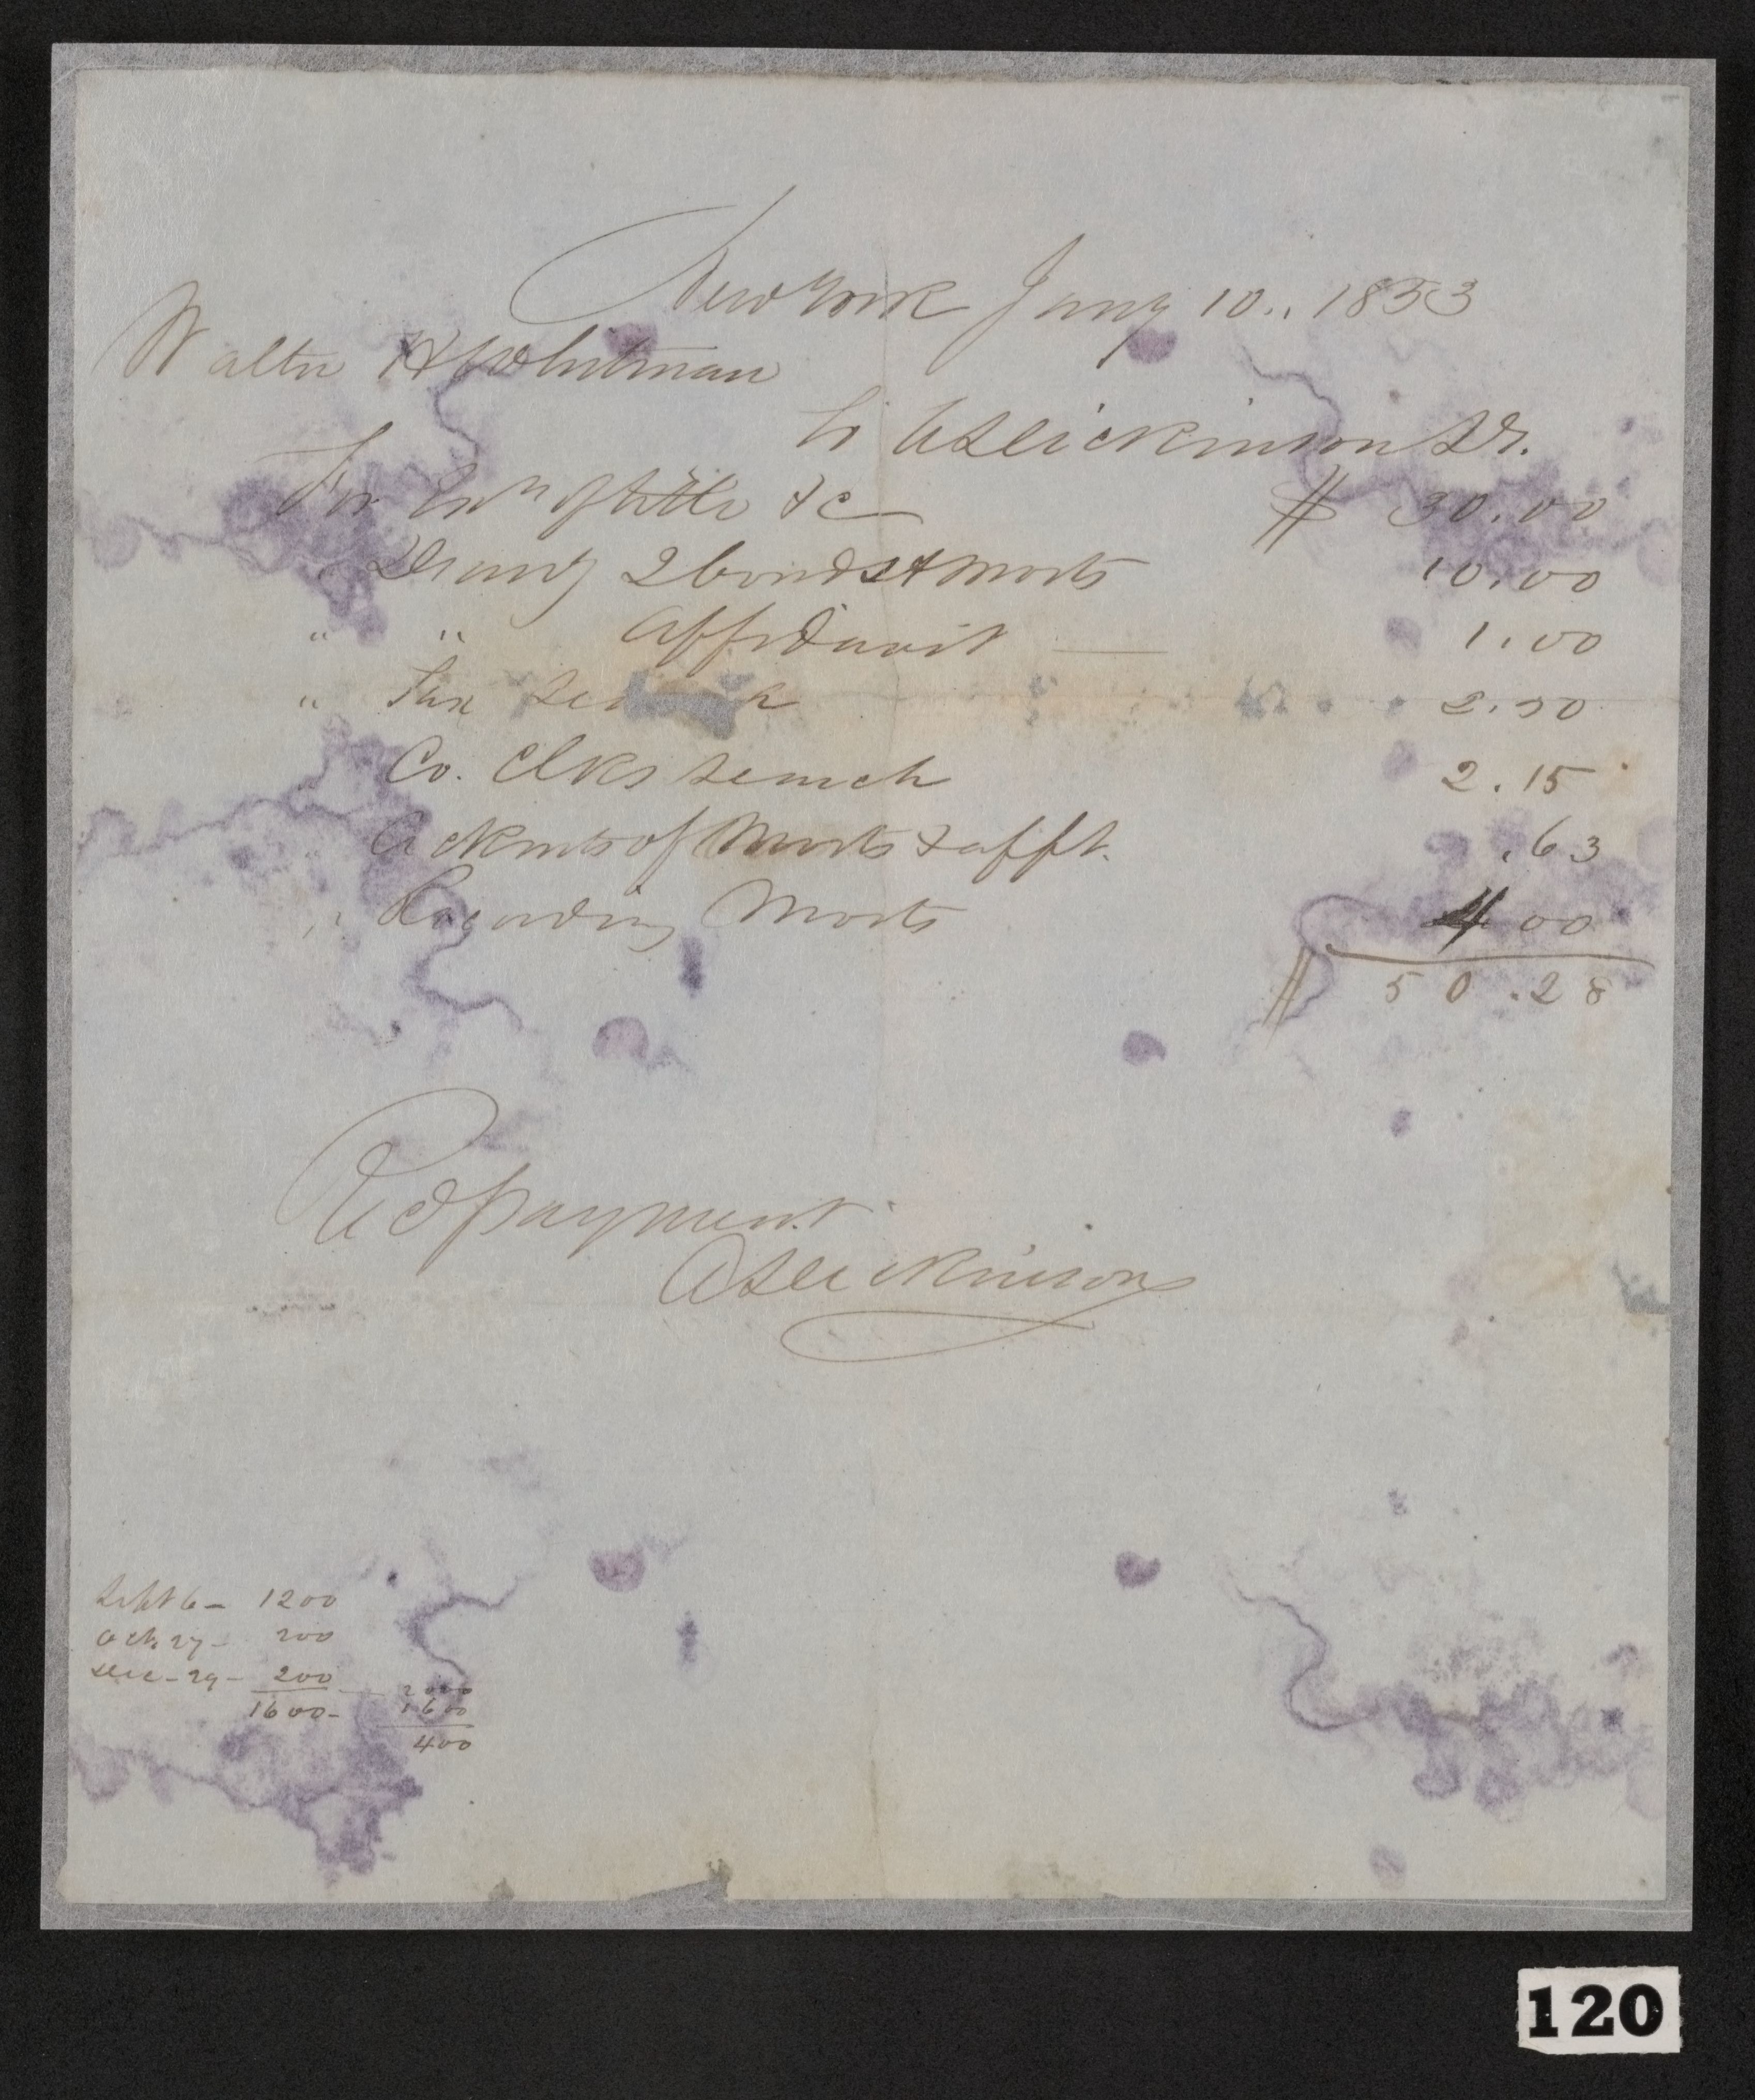 New York Jany 10.. 1853
Walter Whitman
To A S Dickinson Dr.
For Exn of title &c $ 30.00
Drawg 2 bonds & Morts 10.00
" " Affidavit — 1.00
" Tax Search 2.50
Co. Clks Search 2.15
Ackmts of Morts & afft. .63
" Recording Morts 4 00
$ 50.28
Recd payment
A S Dickinson
Sept 6 – 1200
Oct. 27 – 200
Dec – 29 – 200 — 2000
1600 – 1600
400
120